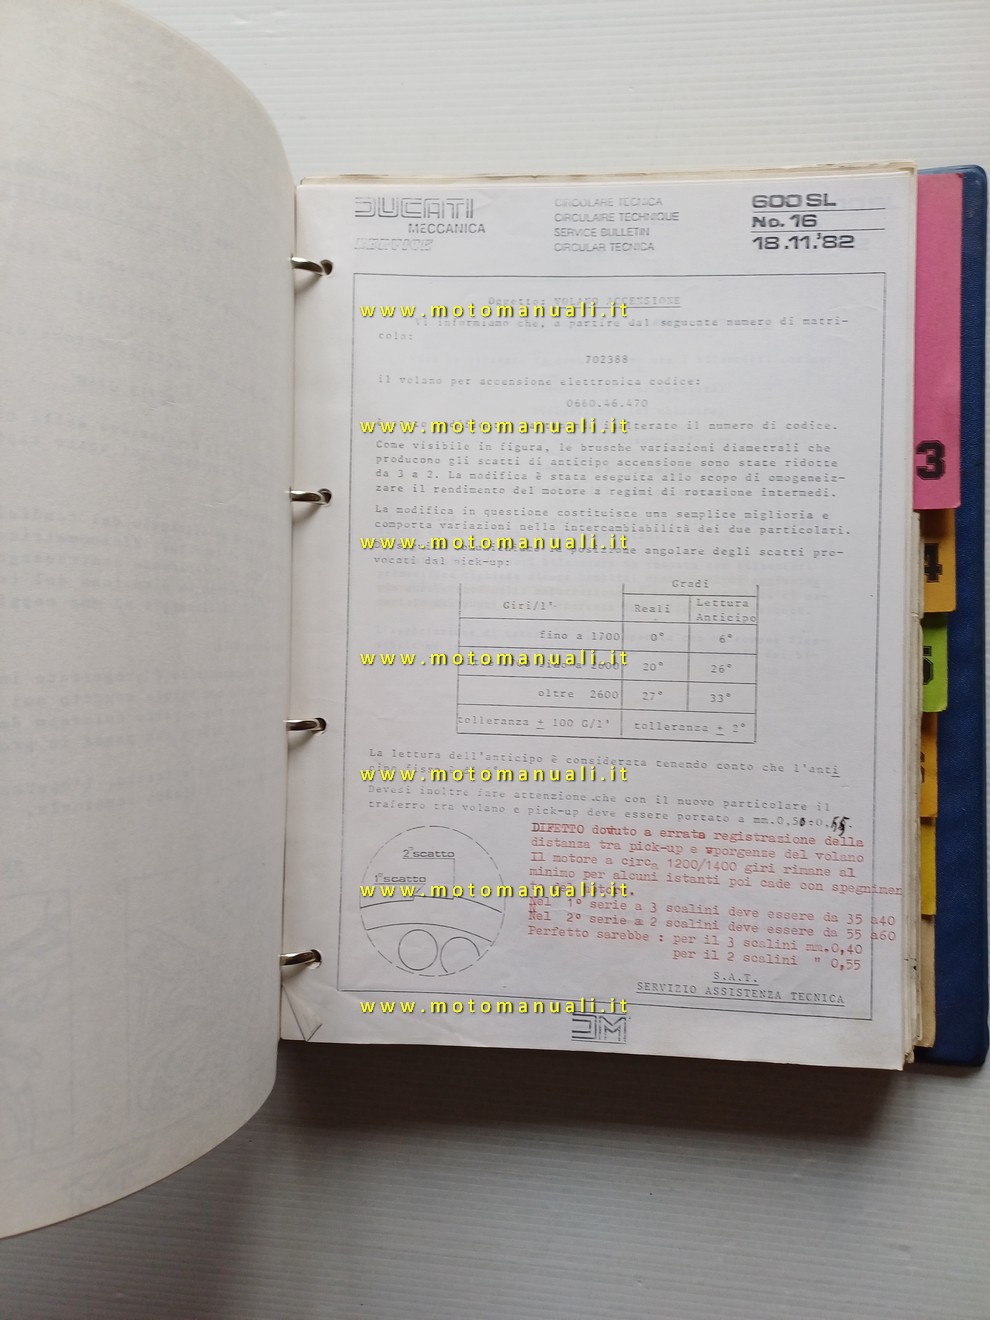 DUCATI
MECCANICA
SERVICE
CIRCOLARE TECNICA
CIRCULAIRE TECHNIQUE
SERVICE BULLETIN
CIRCULAR TECNICA
600 SL
No. 16
18.11.'82
Oggetto: VOLANO ACCENSIONE
www.motomanuali.it
Vi informiamo che, a partire dal seguente numero di matri-
cola:
702388
il volano per accensione elettronica codice:
0660.46.470
il numero di codice.
www.motomanuali.it
Come visibile in figura, le brusche variazioni diametrali che
producono gli scatti di anticipo accensione sono state ridotte
da 3 a 2. La modifica è stata eseguita allo scopo di omogeneiz-
zare il rendimento del motore a regimi di rotazione intermedi.
La modifica in questione costituisce una semplice miglioria e
comporta variazioni nella intercambiabilità dei due particolari.
www.motomanuali.it
la posizione angolare degli scatti pro-
vocati dal pick-up:
Giri/1'
Gradi
Reali
Lettura
Anticipo
fino a 1700 0° 6°
www.motomanuali.it
20° 26°
oltre 2600 27° 33°
tolleranza ± 100 G/1' tolleranza ± 2°
La lettura dell'anticipo è considerata tenendo conto che l'anti
www.motomanuali.it
Devesi inoltre fare attenzione che con il nuovo particolare il
traferro tra volano e pick-up deve essere portato a mm.0,50÷0.55.
2° scatto
1° scatto
DIFETTO dovuto a errata registrazione della
distanza tra pick-up e sporgenze del volano
Il motore a circa 1200/1400 giri rimane al
minimo per alcuni istanti poi cade con spegnimen
www.motomanuali.it
Nel 1° serie a 3 scalini deve essere da 35 a40
Nel 2° serie a 2 scalini deve essere da 55 a60
Perfetto sarebbe : per il 3 scalini mm.0,40
per il 2 scalini " 0,55
S.A.T.
SERVIZIO ASSISTENZA TECNICA
www.motomanuali.it
DM
3
4
5